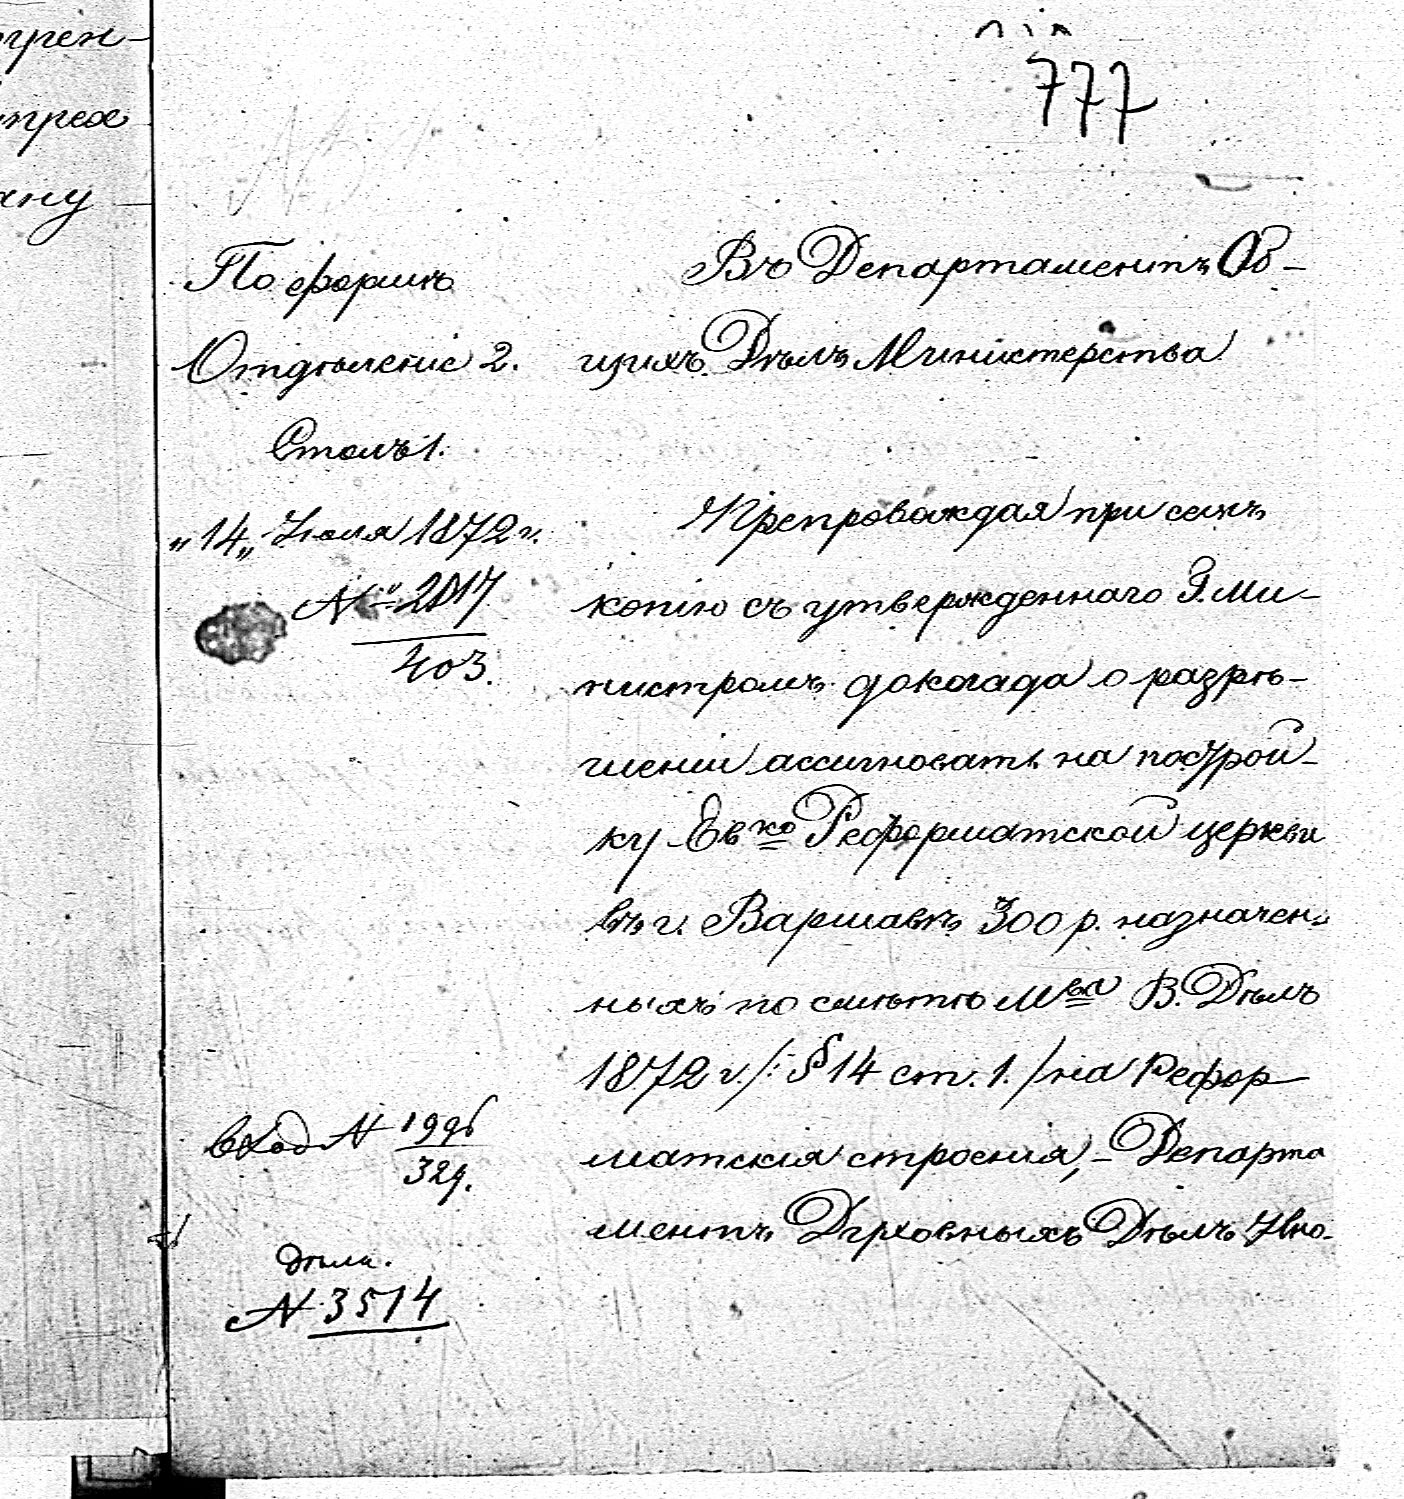 777
По формѣ
Отдѣленіе 2.
Столъ 1.
„14„ Іюля 1872 г.
№ 2017
403.
вход № 1996
329.
дѣла.
№ 3514
Въ Департаментъ Об-
щихъ Дѣлъ Министерства
Препровождая при семъ
копію съ утвержденнаго Г. Ми-
нистромъ доклада о разрѣ-
шеніи ассигновать на построй-
ку Ев.ко Реформатской церкви
въ г. Варшавѣ 300 р. назначен-
ныхъ по смѣтѣ М.ва В. Дѣлъ
1872 г. /: § 14 ст. 1. / на Рефор-
матскія строенія, - Департа
ментъ Духовныхъ Дѣлъ